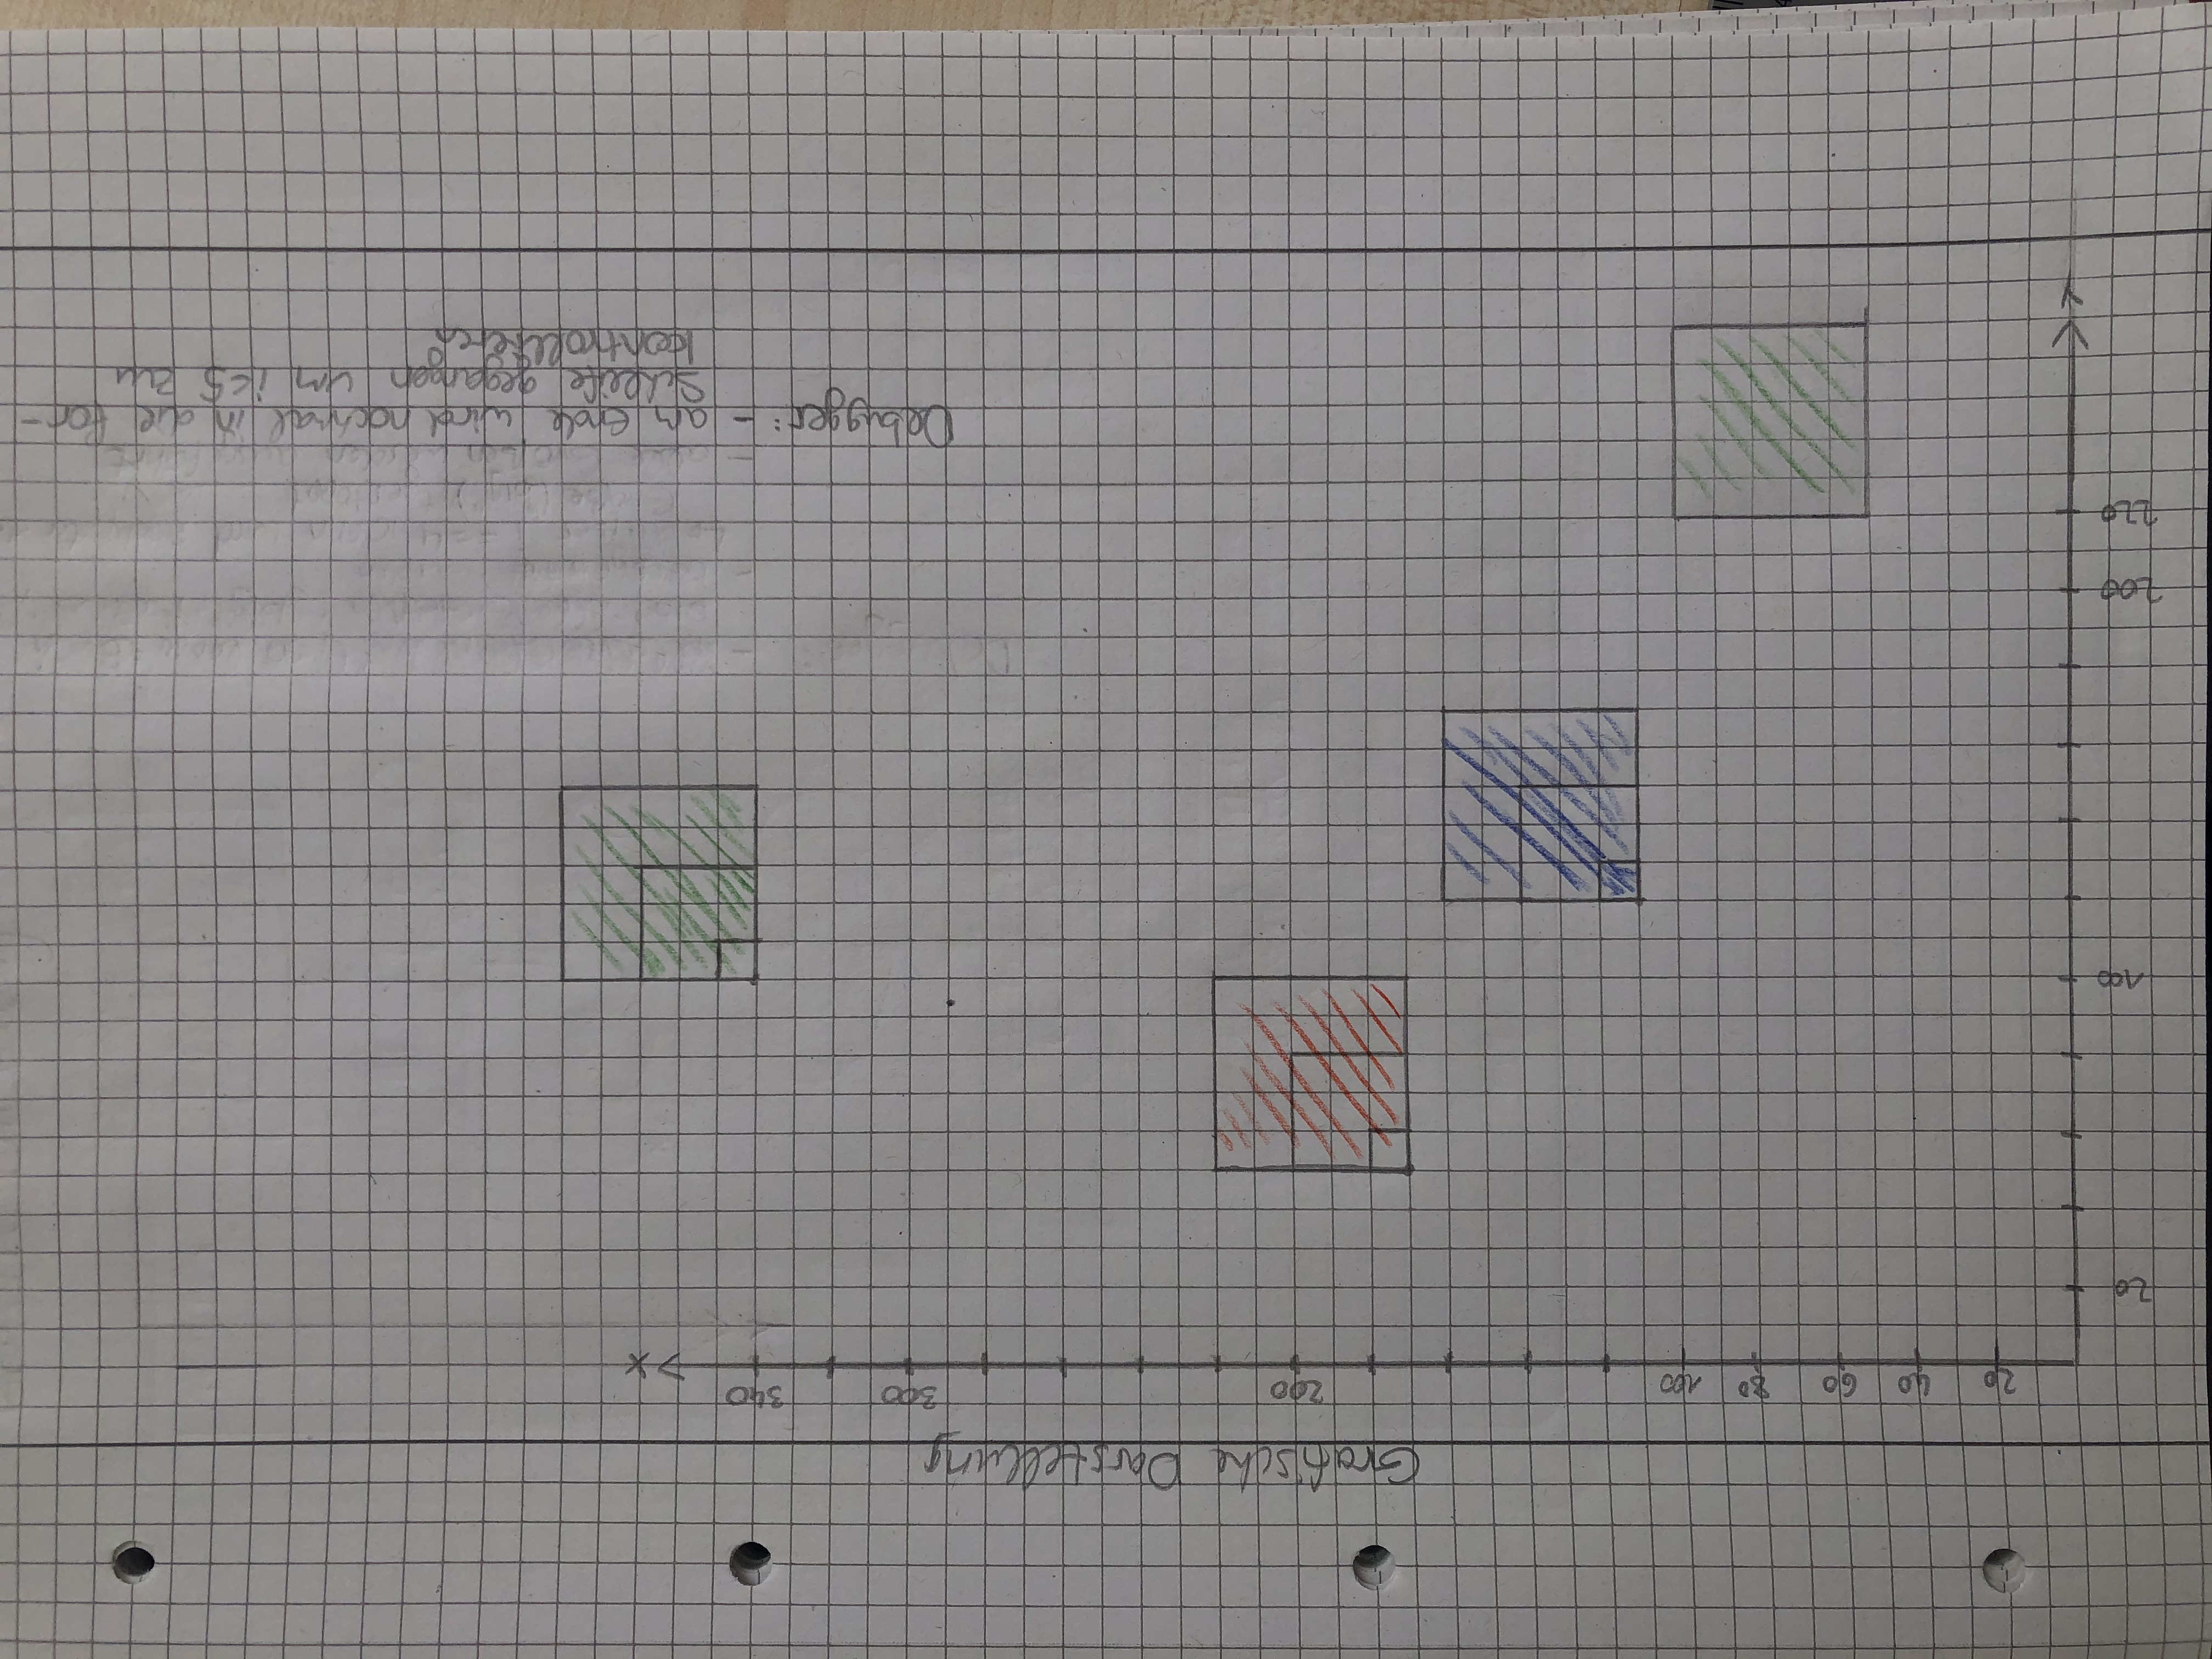 Grafische Darstellung
20 40 60 80 100 200 300 340
x
20
100
200
220
Debugger: - am Ende wird nochmal in die for-
Schleife gegangen um i<5 zu
kontrollieren
y